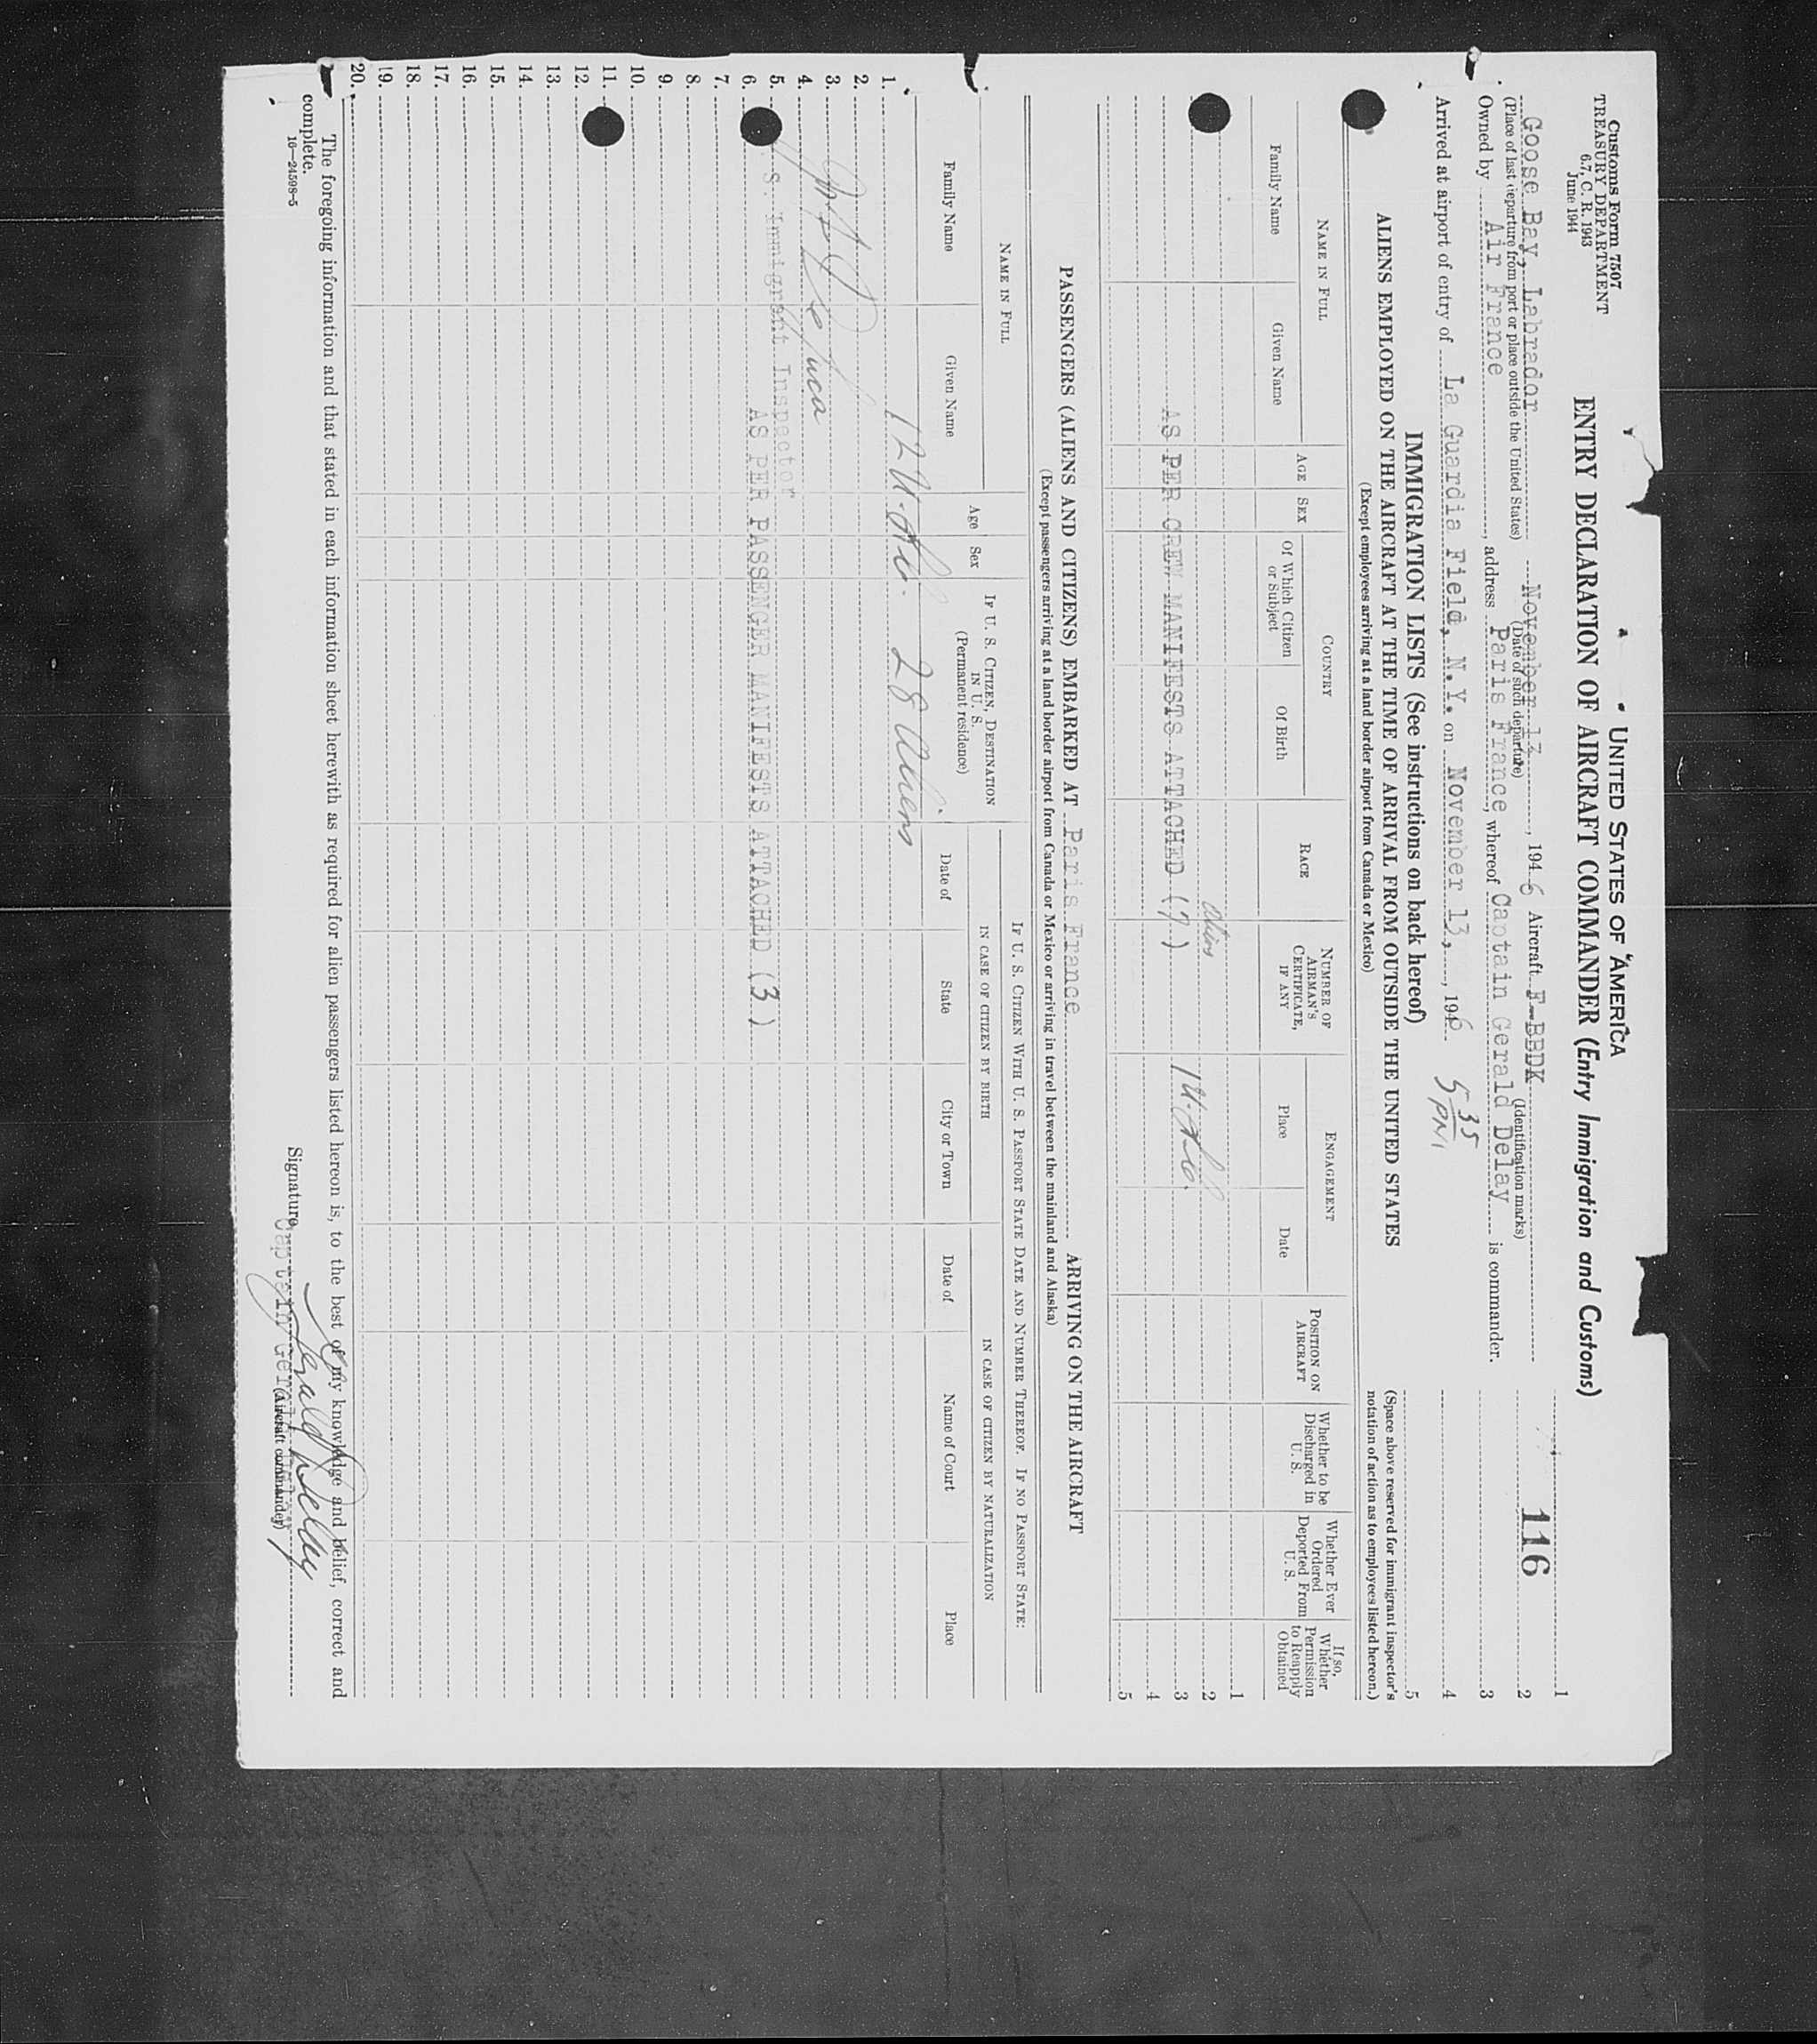 Customs Form 7507
TREASURY DEPARTMENT
6.7, C. R. 1943
June 1944
UNITED STATES OF AMERICA
ENTRY DECLARATION OF AIRCRAFT COMMANDER (Entry Immigration and Customs)
116
Goose Bay, Labrador November 13, 1946 Aircraft F-BBDK
(Place of last departure from port or place outside the United States) (Date of such departure) (Identification marks)
Owned by Air France, address Paris France, whereof Captain Gerald Delay is commander.
Arrived at airport of entry of La Guardia Field, N.Y. on November 13, 1946 5 35 PM
1
2
3
4
5
IMMIGRATION LISTS (See instructions on back hereof)
(Space above reserved for immigrant inspector's notation of action as to employees listed hereon.)
ALIENS EMPLOYED ON THE AIRCRAFT AT THE TIME OF ARRIVAL FROM OUTSIDE THE UNITED STATES
(Except employees arriving at a land border airport from Canada or Mexico)
NAME IN FULL
Family Name Given Name
AGE
SEX
COUNTRY
Of Which Citizen or Subject
Of Birth
RACE
NUMBER OF AIRMAN'S CERTIFICATE, IF ANY
ENGAGEMENT
Place Date
POSITION ON AIRCRAFT
Whether to be Discharged in U. S.
Whether Ever Ordered Deported From U. S.
If so, Whether Permission to Reapply Obtained
1
2
3
AS PER CREW MANIFESTS ATTACHED (7)
4
5
PASSENGERS (ALIENS AND CITIZENS) EMBARKED AT Paris France ARRIVING ON THE AIRCRAFT
(Except passengers arriving at a land border airport from Canada or Mexico or arriving in travel between the mainland and Alaska)
NAME IN FULL
Family Name Given Name
Age
Sex
IF U. S. CITIZEN, DESTINATION IN U. S.
(Permanent residence)
IF U. S. CITIZEN WITH U. S. PASSPORT STATE DATE AND NUMBER THEREOF. IF NO PASSPORT STATE:
IN CASE OF CITIZEN BY BIRTH
IN CASE OF CITIZEN BY NATURALIZATION
Date of State City or Town Date of Name of Court Place
1. 28 Aliens
2.
3.
4.
5. S. Immigrant Inspector
6. AS PER PASSENGER MANIFESTS ATTACHED (3)
7.
8.
9.
10.
11.
12.
13.
14.
15.
16.
17.
18.
19.
20.
The foregoing information and that stated in each information sheet herewith as required for alien passengers listed hereon is, to the best of my knowledge and belief, correct and
complete.
Signature Gerald Delay
16—24598-5
Captain Gerald Delay
(Aircraft commander)